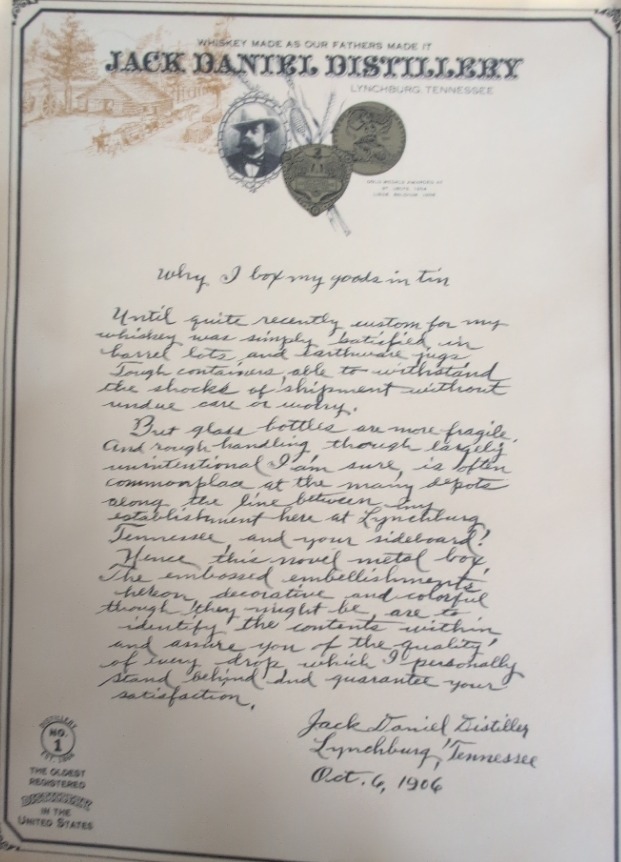 WHISKEY MADE AS OUR FATHERS MADE IT
JACK DANIEL DISTILLERY
LYNCHBURG, TENNESSEE
GOLD MEDALS AWARDED AT
ST. LOUIS, 1904
LIEGE, BELGIUM, 1905
Why I box my goods in tin
Until quite recently custom for my
whiskey was simply satisfied in
barrel lots, and earthware jugs
Tough containers able to withstand
the shocks of shipment without
undue care or worry.
But glass bottles are more fragile,
And rough handling, though largely
unintentional I am sure, is often
commonplace at the many depots
along the line between my
establishment here at Lynchburg,
Tennessee and your sideboard!
Hence, this novel metal box,
The embossed embellishments,
hereon, decorative and colorful
though they might be, are to
identify the contents within
and assure you of the quality
of every drop which I personally
stand behind and guarantee your
satisfaction.
Jack Daniel Distiller
Lynchburg, Tennessee
Oct. 6, 1906
DISTILLERY
NO.
1
EST. 1866
THE OLDEST
REGISTERED
DISTILLERY
IN THE
UNITED STATES